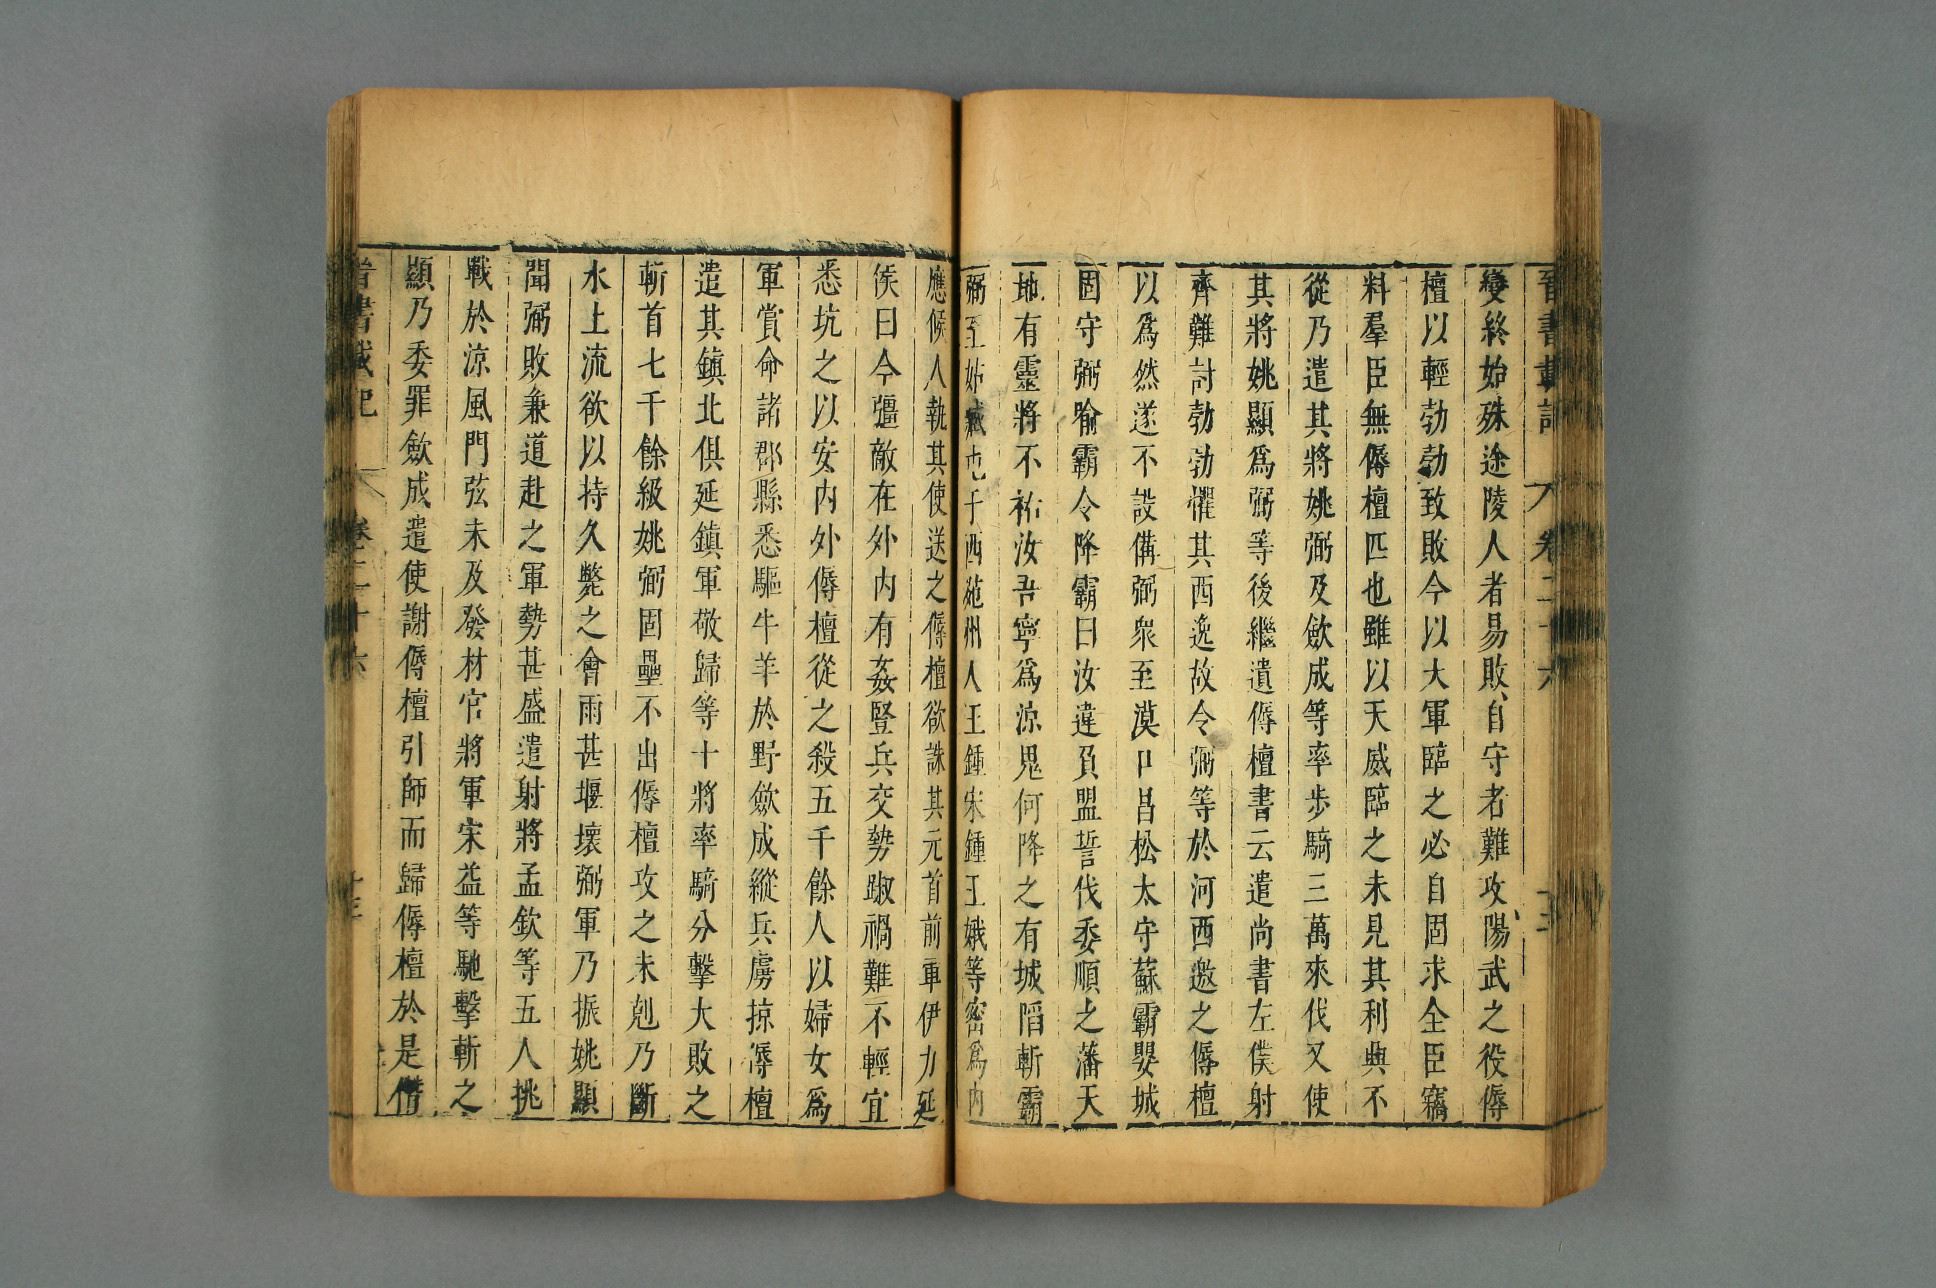 晉書載記 卷二十六 十三
變終始殊途陵人者易敗自守者難攻陽武之役傉
檀以輕勃勃致敗今以大軍臨之必自固求全臣竊
料羣臣無傉檀匹也雖以天威臨之未見其利興不
從乃遣其將姚弼及歛成等率步騎三萬來伐又使
其將姚顯爲弼等後繼遺傉檀書云遣尚書左僕射
齊難討勃勃懼其西逸故令弼等於河西邀之傉檀
以爲然遂不設備弼衆至漠口昌松太守蘇霸嬰城
固守弼喻霸令降霸曰汝違負盟誓伐委順之藩天
地有靈將不祐汝吾寧爲涼鬼何降之有城陷斬霸
弼至姑臧屯于西苑州人王鍾宋鍾王娥等密爲内
應候人執其使送之傉檀欲誅其元首前軍伊力延
侯曰今彊敵在外内有姦豎兵交勢踧禍難不輕宜
悉坑之以安内外傉檀從之殺五千餘人以婦女爲
軍賞命諸郡縣悉驅牛羊於野歛成縱兵虜掠傉檀
遣其鎮北俱延鎮軍敬歸等十將率騎分擊大敗之
斬首七千餘級姚弼固壘不出傉檀攻之未剋乃斷
水上流欲以持久斃之會雨甚堰壞弼軍乃振姚顯
聞弼敗兼道赴之軍勢甚盛遣射將孟欽等五人挑
戰於涼風門弦未及發材官將軍宋益等馳擊斬之
顯乃委罪歛成遣使謝傉檀引師而歸傉檀於是僭
晉書載記 卷二十六 十三